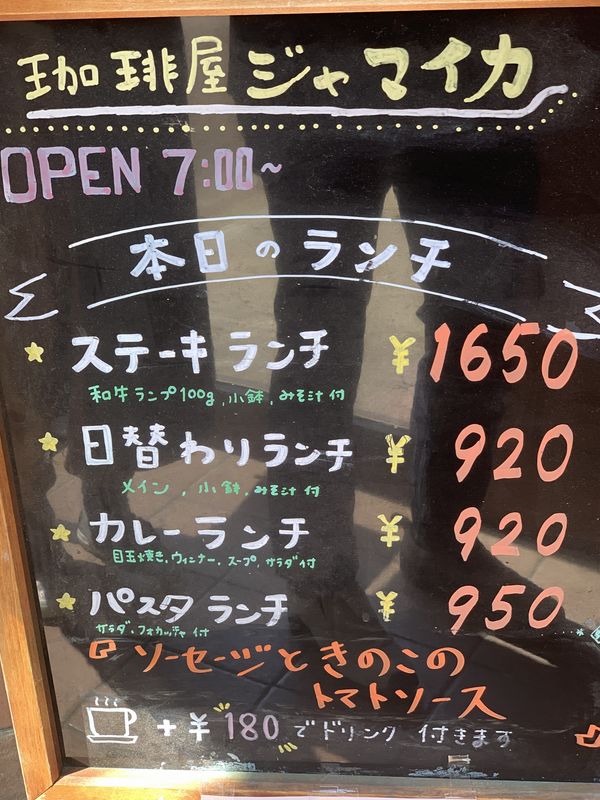 珈琲屋ジャマイカ
OPEN 7:00~
本日のランチ
ステーキランチ ¥1650
和牛ランプ100g、小鉢、みそ汁付
日替わりランチ ¥920
メイン、小鉢、みそ汁付
カレーランチ ¥920
目玉焼き、ウィンナー、スープ、サラダ付
パスタランチ ¥950
サラダ・フォカッチャ付
ソーセージときのこの
トマトソース
+¥180でドリンク付きます